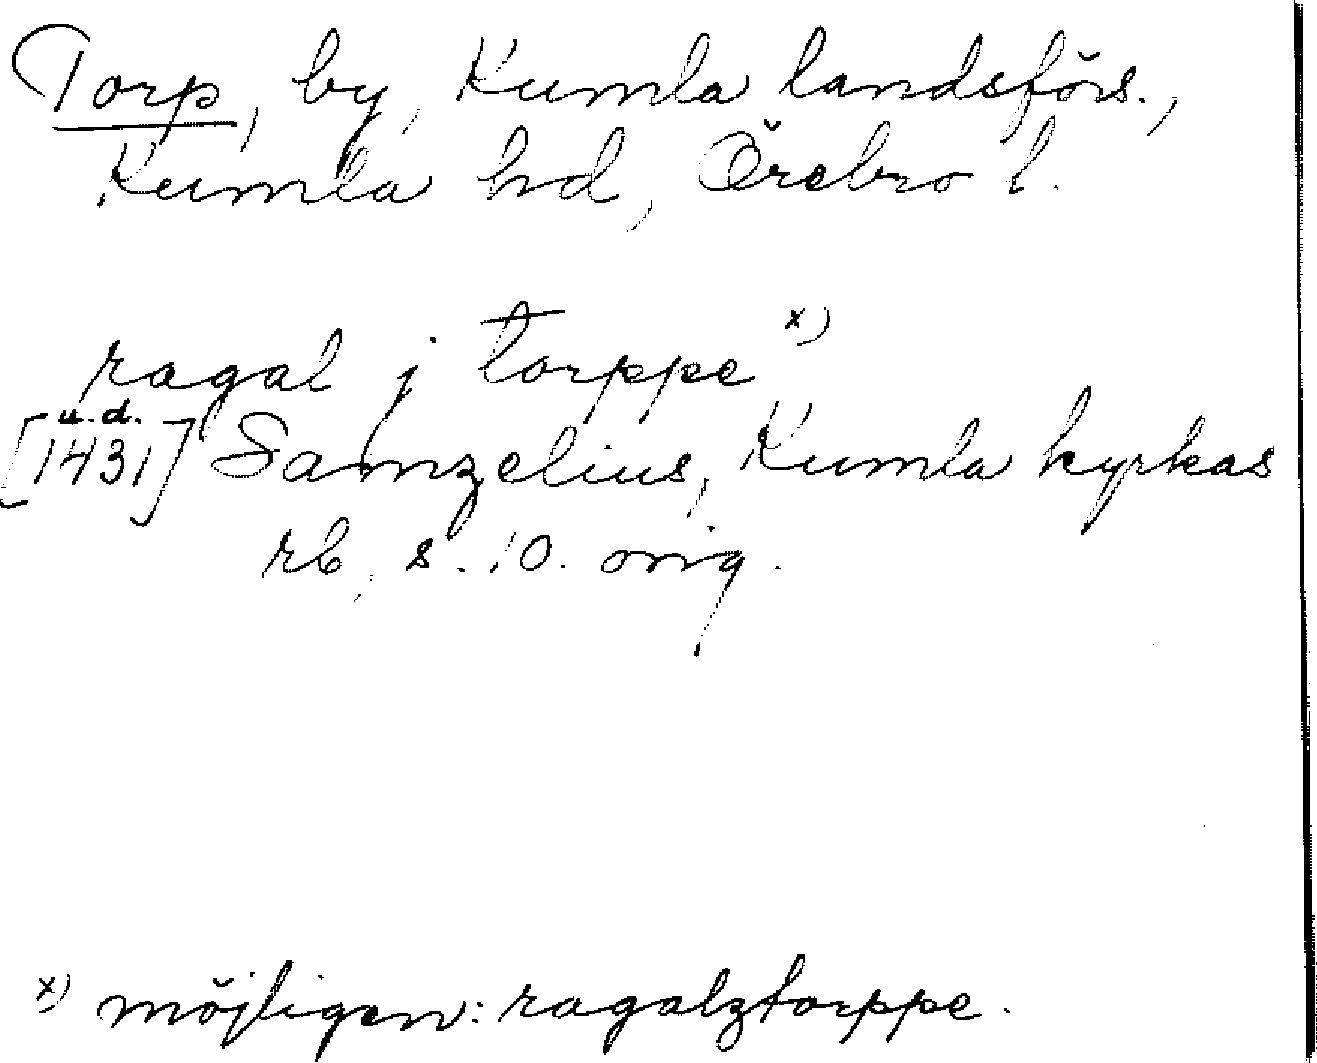 Torp, by, Kumla landsförs.,
Kumla hd, Örebro l.
ragal j torppe x)
u.d.
[1431] Samzelius, Kumla kyrkas
rb, s. 10. orig.
x) möjligen: ragalztorppe.